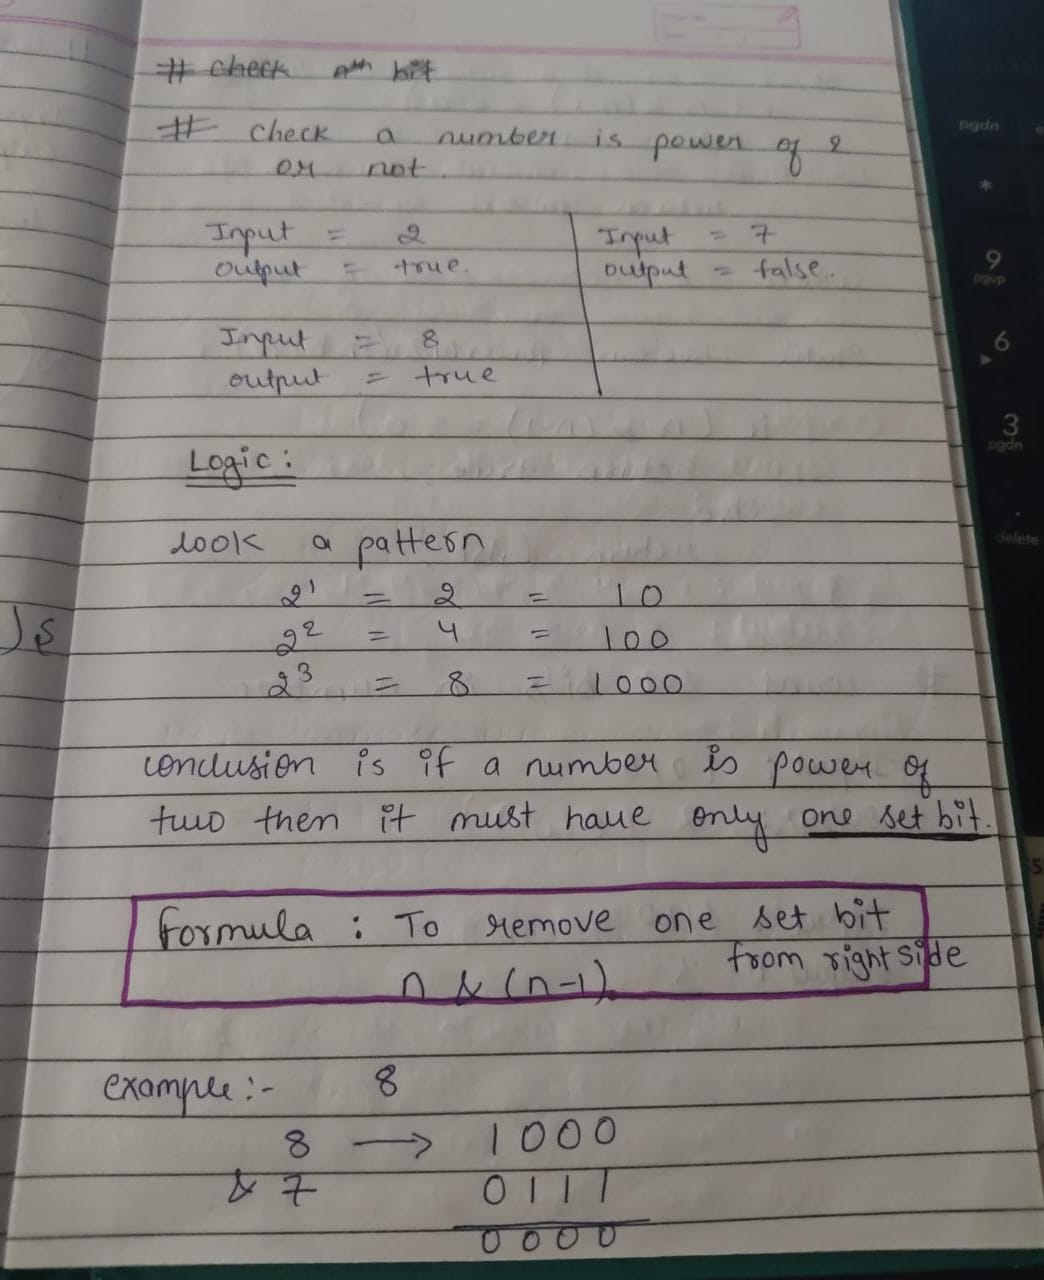 # check nth bit
# check a number is power of 2
or not.
Input = 2
output = true.
Input = 7
output = false..
Input = 8
output = true
Logic:
Look a pattern
2¹ = 2 = 10
2² = 4 = 100
2³ = 8 = 1000
conclusion is if a number is power of
two then it must have only one set bit.
formula : To remove one set bit
from right side
n & (n-1).
example:- 8
8 → 1000
& 7 0111
0000
pgdn
*
9
pgup
6
3
pgdn
.
delete
5